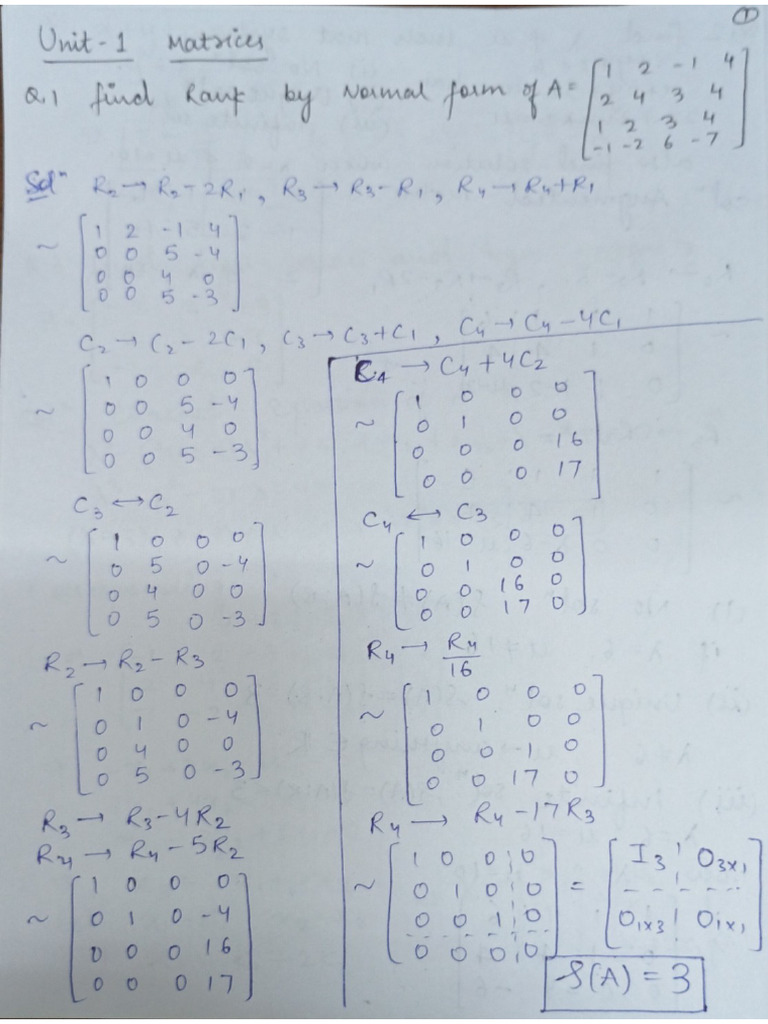 ①
Unit-1 Matrices
Q.1 find Rank by Normal form of A = [1 2 -1 4
2 4 3 4
1 2 3 4
-1 -2 6 -7]
Solⁿ R₂→R₂-2R₁, R₃→R₃-R₁, R₄→R₄+R₁
~ [1 2 -1 4
0 0 5 -4
0 0 4 0
0 0 5 -3]
C₂→C₂-2C₁, C₃→C₃+C₁, C₄→C₄-4C₁
~ [1 0 0 0
0 0 5 -4
0 0 4 0
0 0 5 -3]
C₃↔C₂
~ [1 0 0 0
0 5 0 -4
0 4 0 0
0 5 0 -3]
R₂→R₂-R₃
~ [1 0 0 0
0 1 0 -4
0 4 0 0
0 5 0 -3]
R₃→ R₃-4R₂
R₄→ R₄-5R₂
~ [1 0 0 0
0 1 0 -4
0 0 0 16
0 0 0 17]
C₄→ C₄+4C₂
~ [1 0 0 0
0 1 0 0
0 0 0 16
0 0 0 17]
C₄↔ C₃
~ [1 0 0 0
0 1 0 0
0 0 16 0
0 0 17 0]
R₄→ R₄/16
~ [1 0 0 0
0 1 0 0
0 0 1 0
0 0 17 0]
R₄→ R₄-17R₃
~ [1 0 0 0
0 1 0 0
0 0 1 0
0 0 0 0] = [I₃ O₃ₓ₁
O₁ₓ₃ O₁ₓ₁]
ρ(A) = 3